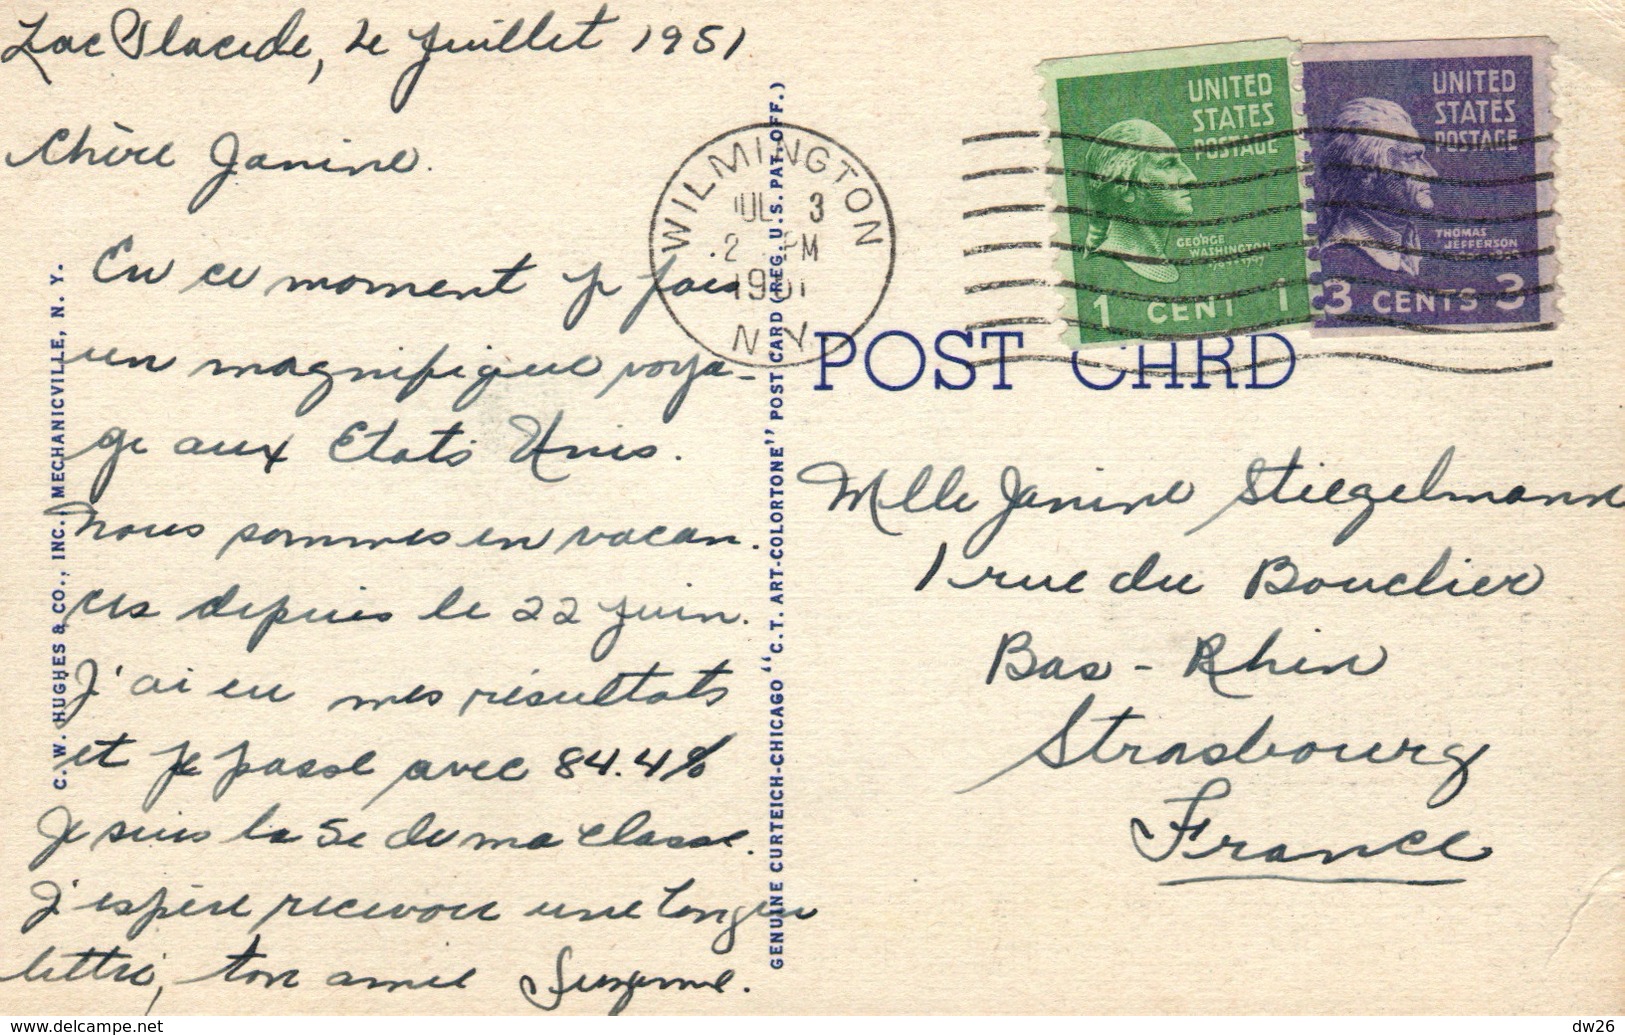 Lac Placide, 2e juillet 1951
Chère Janine.
En ce moment je fais
un magnifique voya-
ge aux Etats Unis.
Nous sommes en vacan-
ces depuis le 22 juin.
J'ai eu mes résultats
et je passe avec 84.4%
Je suis la 5e de ma classe.
J'espère recevoir une longue
lettre, ton amie Suzanne.
C. W. HUGHES & CO., INC., MECHANICVILLE, N. Y.
GENUINE CURTEICH-CHICAGO "C.T. ART-COLORTONE" POST CARD (REG. U.S. PAT. OFF.)
WILMINGTON
JUL 3
2 PM
1951
N.Y.
UNITED
STATES
POSTAGE
GEORGE
WASHINGTON
1 CENT 1
UNITED
STATES
POSTAGE
THOMAS
JEFFERSON
3 CENTS 3
POST CARD
Mlle Janine Stiegelmann
1 rue du Bouclier
Bas-Rhin
Strasbourg
France
www.delcampe.net
dw26